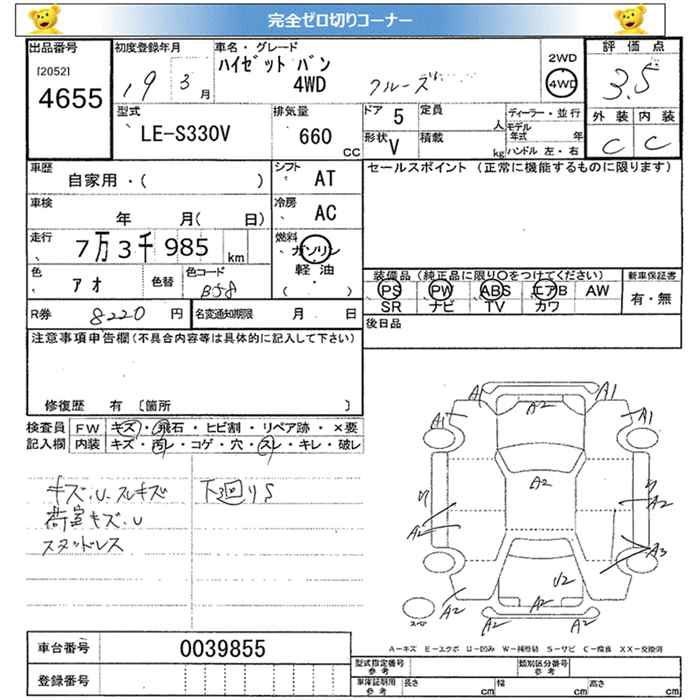 完全ゼロ切りコーナー
出品番号
[2052]
4655
初度登録年月
19 3 月
車名・グレード
ハイゼット バン
4WD
クルーズ
2WD
4WD
評価点
3.5
外装 内装
C C
型式
LE-S330V
排気量
660
CC
ドア 5
定員
人
ディーラー・並行
モデル年式 年
ハンドル 左・右
形状 V
積載
kg
車歴
自家用・( )
シフト
AT
セールスポイント (正常に機能するものに限ります)
車検
年 月( 日)
冷房
AC
走行
7万3千985 km
燃料
ガソリン
軽油
( )
色
アオ
色替
色コード
B58
装備品(純正品に限り○をつけてください)
PS PW ABS エアB AW
SR ナビ TV カワ
新車保証書
有・無
R券 8220 円
名変通知期限 月 日
後日品
注意事項申告欄(不具合内容等は具体的に記入して下さい)
修復歴 有 〔箇所 〕
検査員記入欄
FW キズ・飛石・ヒビ割・リペア跡・×要
内装 キズ・汚レ・コゲ・穴・スレ・キレ・破レ
キズ.U.スレキズ 下廻りS
荷室キズ.U
スタッドレス
A1 A2 A1
A1 A1
A2
リ リ
A2 A2
A3
U2
A2 A2 A2
A2 A2
スペア
A-キズ E-エクボ U-凹み W-補修跡 S-サビ C-腐食 XX-交換済
車台番号
0039855
登録番号
型式指定番号
参考
類別区分番号
参考
車庫証明用
参考
長さ cm 幅 cm 高さ cm